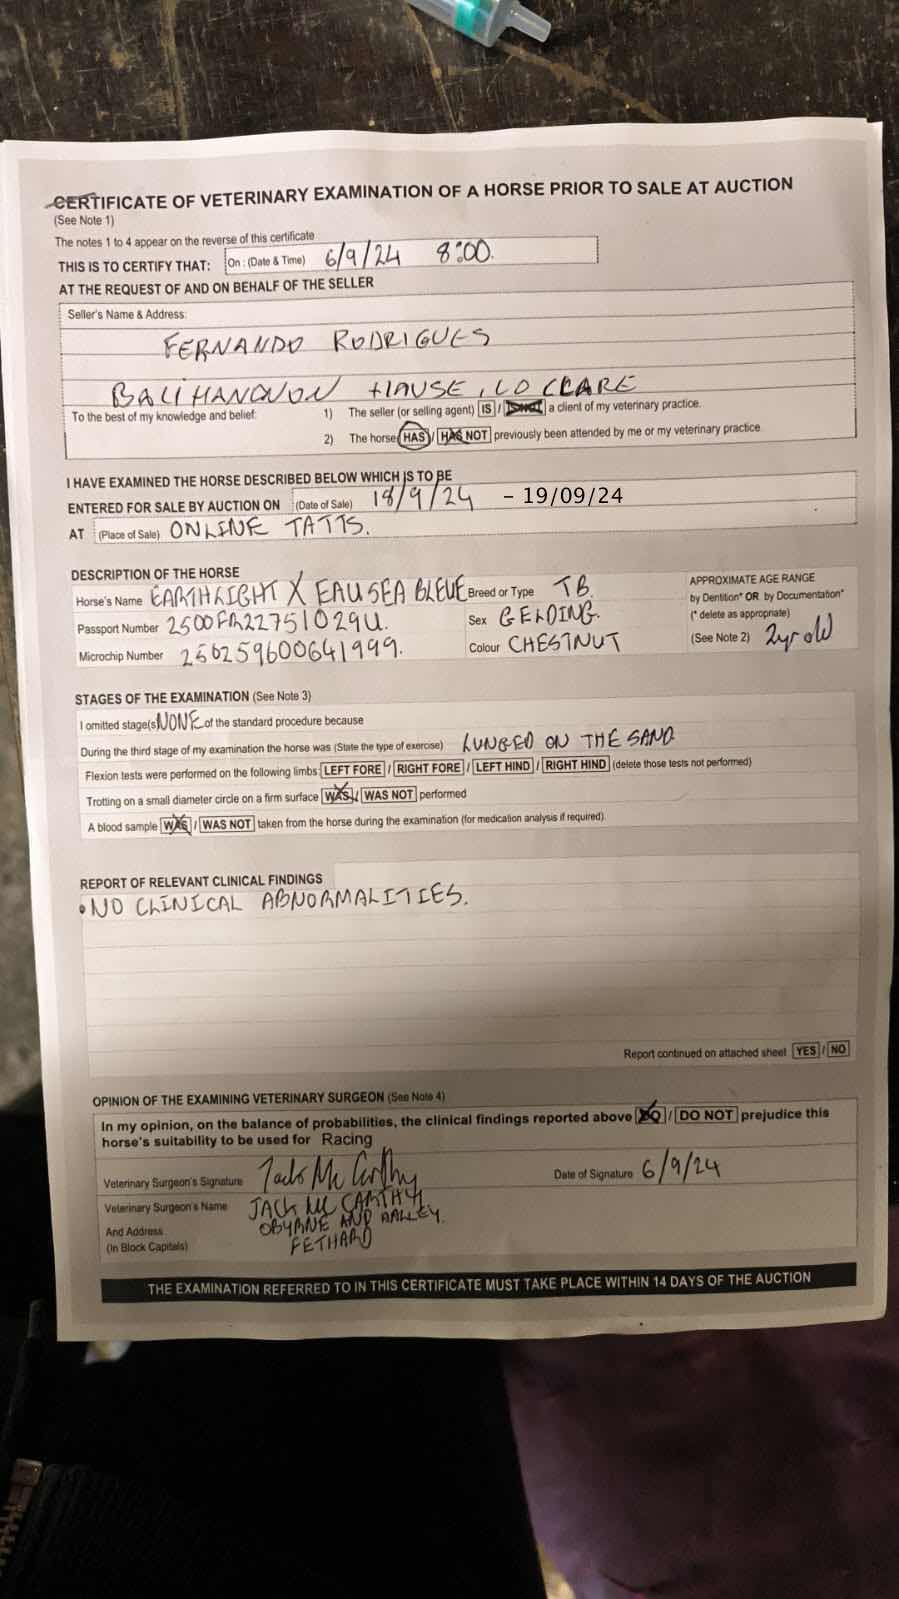 CERTIFICATE OF VETERINARY EXAMINATION OF A HORSE PRIOR TO SALE AT AUCTION
(See Note 1)
The notes 1 to 4 appear on the reverse of this certificate
THIS IS TO CERTIFY THAT: On : (Date & Time) 6/9/24 8:00.
AT THE REQUEST OF AND ON BEHALF OF THE SELLER
Seller's Name & Address:
FERNANDO RODRIGUES
BALIHANONON HAUSE, CO CLARE
To the best of my knowledge and belief: 1) The seller (or selling agent) IS / IS NOT a client of my veterinary practice.
2) The horse HAS / HAS NOT previously been attended by me or my veterinary practice.
I HAVE EXAMINED THE HORSE DESCRIBED BELOW WHICH IS TO BE
ENTERED FOR SALE BY AUCTION ON (Date of Sale) 18/9/24 - 19/09/24
AT (Place of Sale) ONLINE TATTS.
DESCRIPTION OF THE HORSE
Horse's Name EARTHLIGHT X EAUSEA BLEUE Breed or Type TB
Passport Number 2500FR22751029U.
Microchip Number 250259600641999.
Sex GELDING.
Colour CHESTNUT
APPROXIMATE AGE RANGE
by Dentition* OR by Documentation*
(* delete as appropriate)
(See Note 2) 2yr old
STAGES OF THE EXAMINATION (See Note 3)
I omitted stage(s) NONE of the standard procedure because
During the third stage of my examination the horse was (State the type of exercise) LUNGED ON THE SAND
Flexion tests were performed on the following limbs: LEFT FORE / RIGHT FORE / LEFT HIND / RIGHT HIND (delete those tests not performed)
Trotting on a small diameter circle on a firm surface WAS / WAS NOT performed
A blood sample WAS / WAS NOT taken from the horse during the examination (for medication analysis if required)
REPORT OF RELEVANT CLINICAL FINDINGS
• NO CLINICAL ABNORMALITIES.
Report continued on attached sheet YES / NO
OPINION OF THE EXAMINING VETERINARY SURGEON (See Note 4)
In my opinion, on the balance of probabilities, the clinical findings reported above DO / DO NOT prejudice this
horse's suitability to be used for Racing
Veterinary Surgeon's Signature Jack Mc Carthy Date of Signature 6/9/24
Veterinary Surgeon's Name JACK MC CARTHY
And Address OBYRNE AND HALLEY.
(In Block Capitals) FETHARD
THE EXAMINATION REFERRED TO IN THIS CERTIFICATE MUST TAKE PLACE WITHIN 14 DAYS OF THE AUCTION